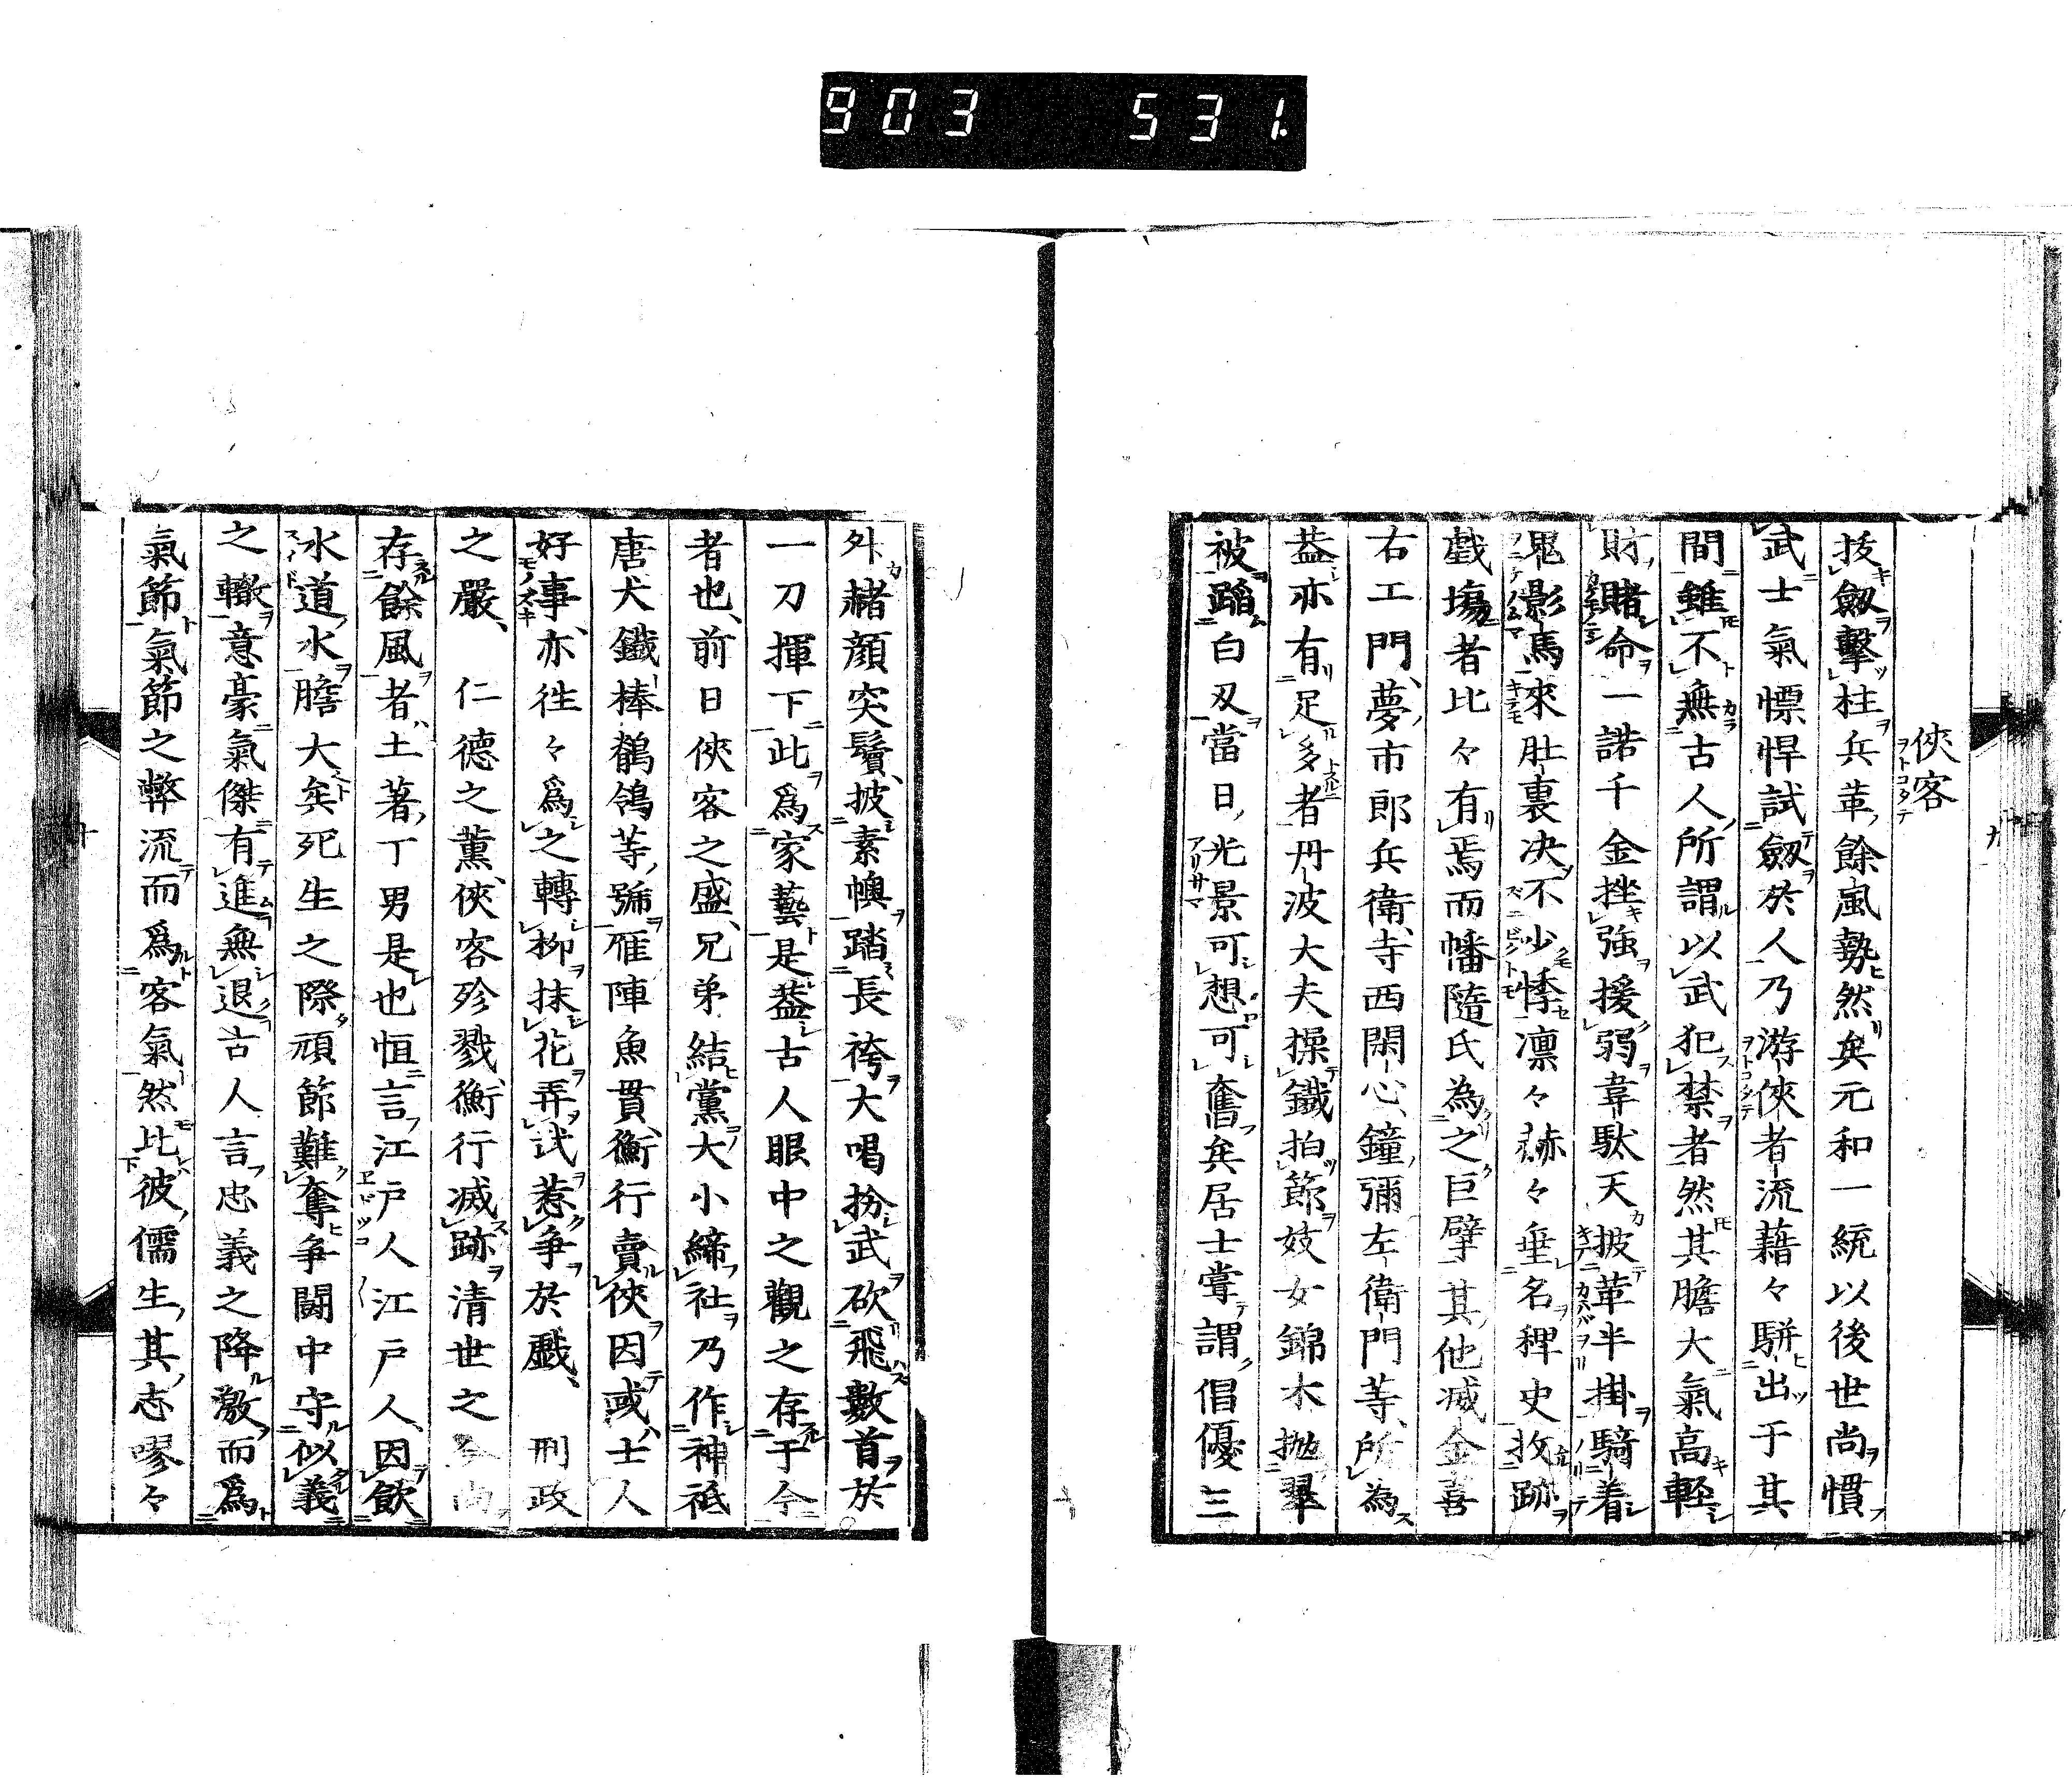 903 531.
俠客
抜劔擊柱兵革餘風勢然矣元和一統以後世尚慣
武士氣慓悍試劔於人乃游俠者流藉々駢出于其
間雖不無古人所謂以武犯禁者然其膽大氣高軽
財賭命一諾千金挫強援弱韋馱天披革半掛騎着
鬼影馬來肚裏决不少悸凛々赫々垂名稗史攷跡
戯塲者比々有焉而幡隨氏為之巨擘其他减金喜
右工門夢市郎兵衛寺西閑心鐘彌左衛門等所為
葢亦有足多者丹波大夫操鐵拍節妓女錦木抛翠
被蹈白刄當日光景可想可奮矣居士嘗謂倡優三
外赭顔突鬢披素懊踏長袴大喝扮武砍飛數首於
一刀揮下此爲家藝是葢古人眼中之觀之存于今
者也前日俠客之盛兄弟結黨大小締社乃作神祇
唐犬鐵棒鶺鴒等號雁陣魚貫衡行賣俠因或士人
好事亦徃々爲之轉柳抹花弄試惹爭於戲 刑政
之嚴 仁德之薫俠客殄戮衡行滅跡清世之今尚
存餘風者土著丁男是也恒言江戸人江戸人因飲
水道水膽大矣死生之際頑節難奪争闘中守似義
之轍意豪氣傑有進無退古人言忠義之降激而爲
氣節氣節之弊流而爲客氣然比彼儒生其志嘐々